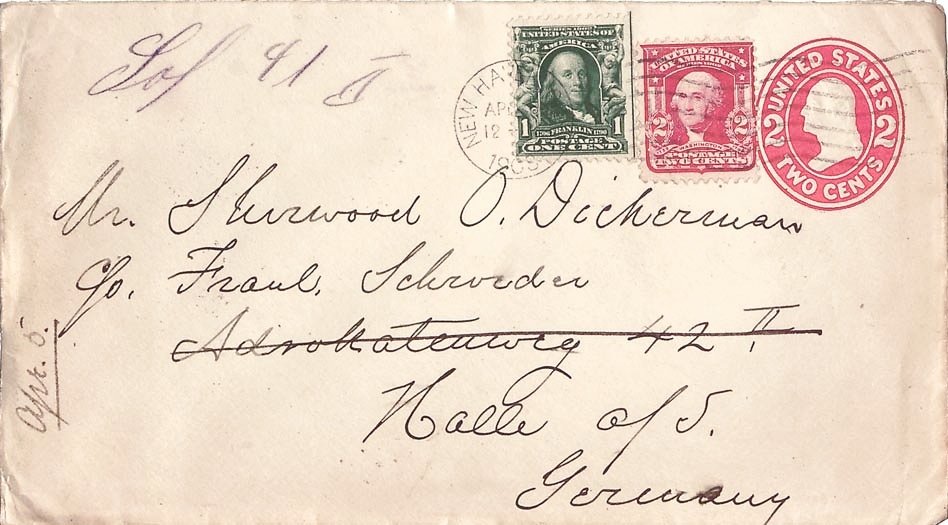 Sof 41 II
SERIES 1902
UNITED STATES OF
AMERICA
1 1706 FRANKLIN 1790 1
POSTAGE
ONE CENT
UNITED STATES
OF AMERICA
2 WASHINGTON 2
POSTAGE
TWO CENTS
UNITED STATES
2 2
TWO CENTS
NEW HA
AP
12
190
Mr. Sherwood O. Dickerman
c/o. Fraul. Schroeder
Advokatenweg 42 II
Halle a/S.
Germany
Apr. 5.